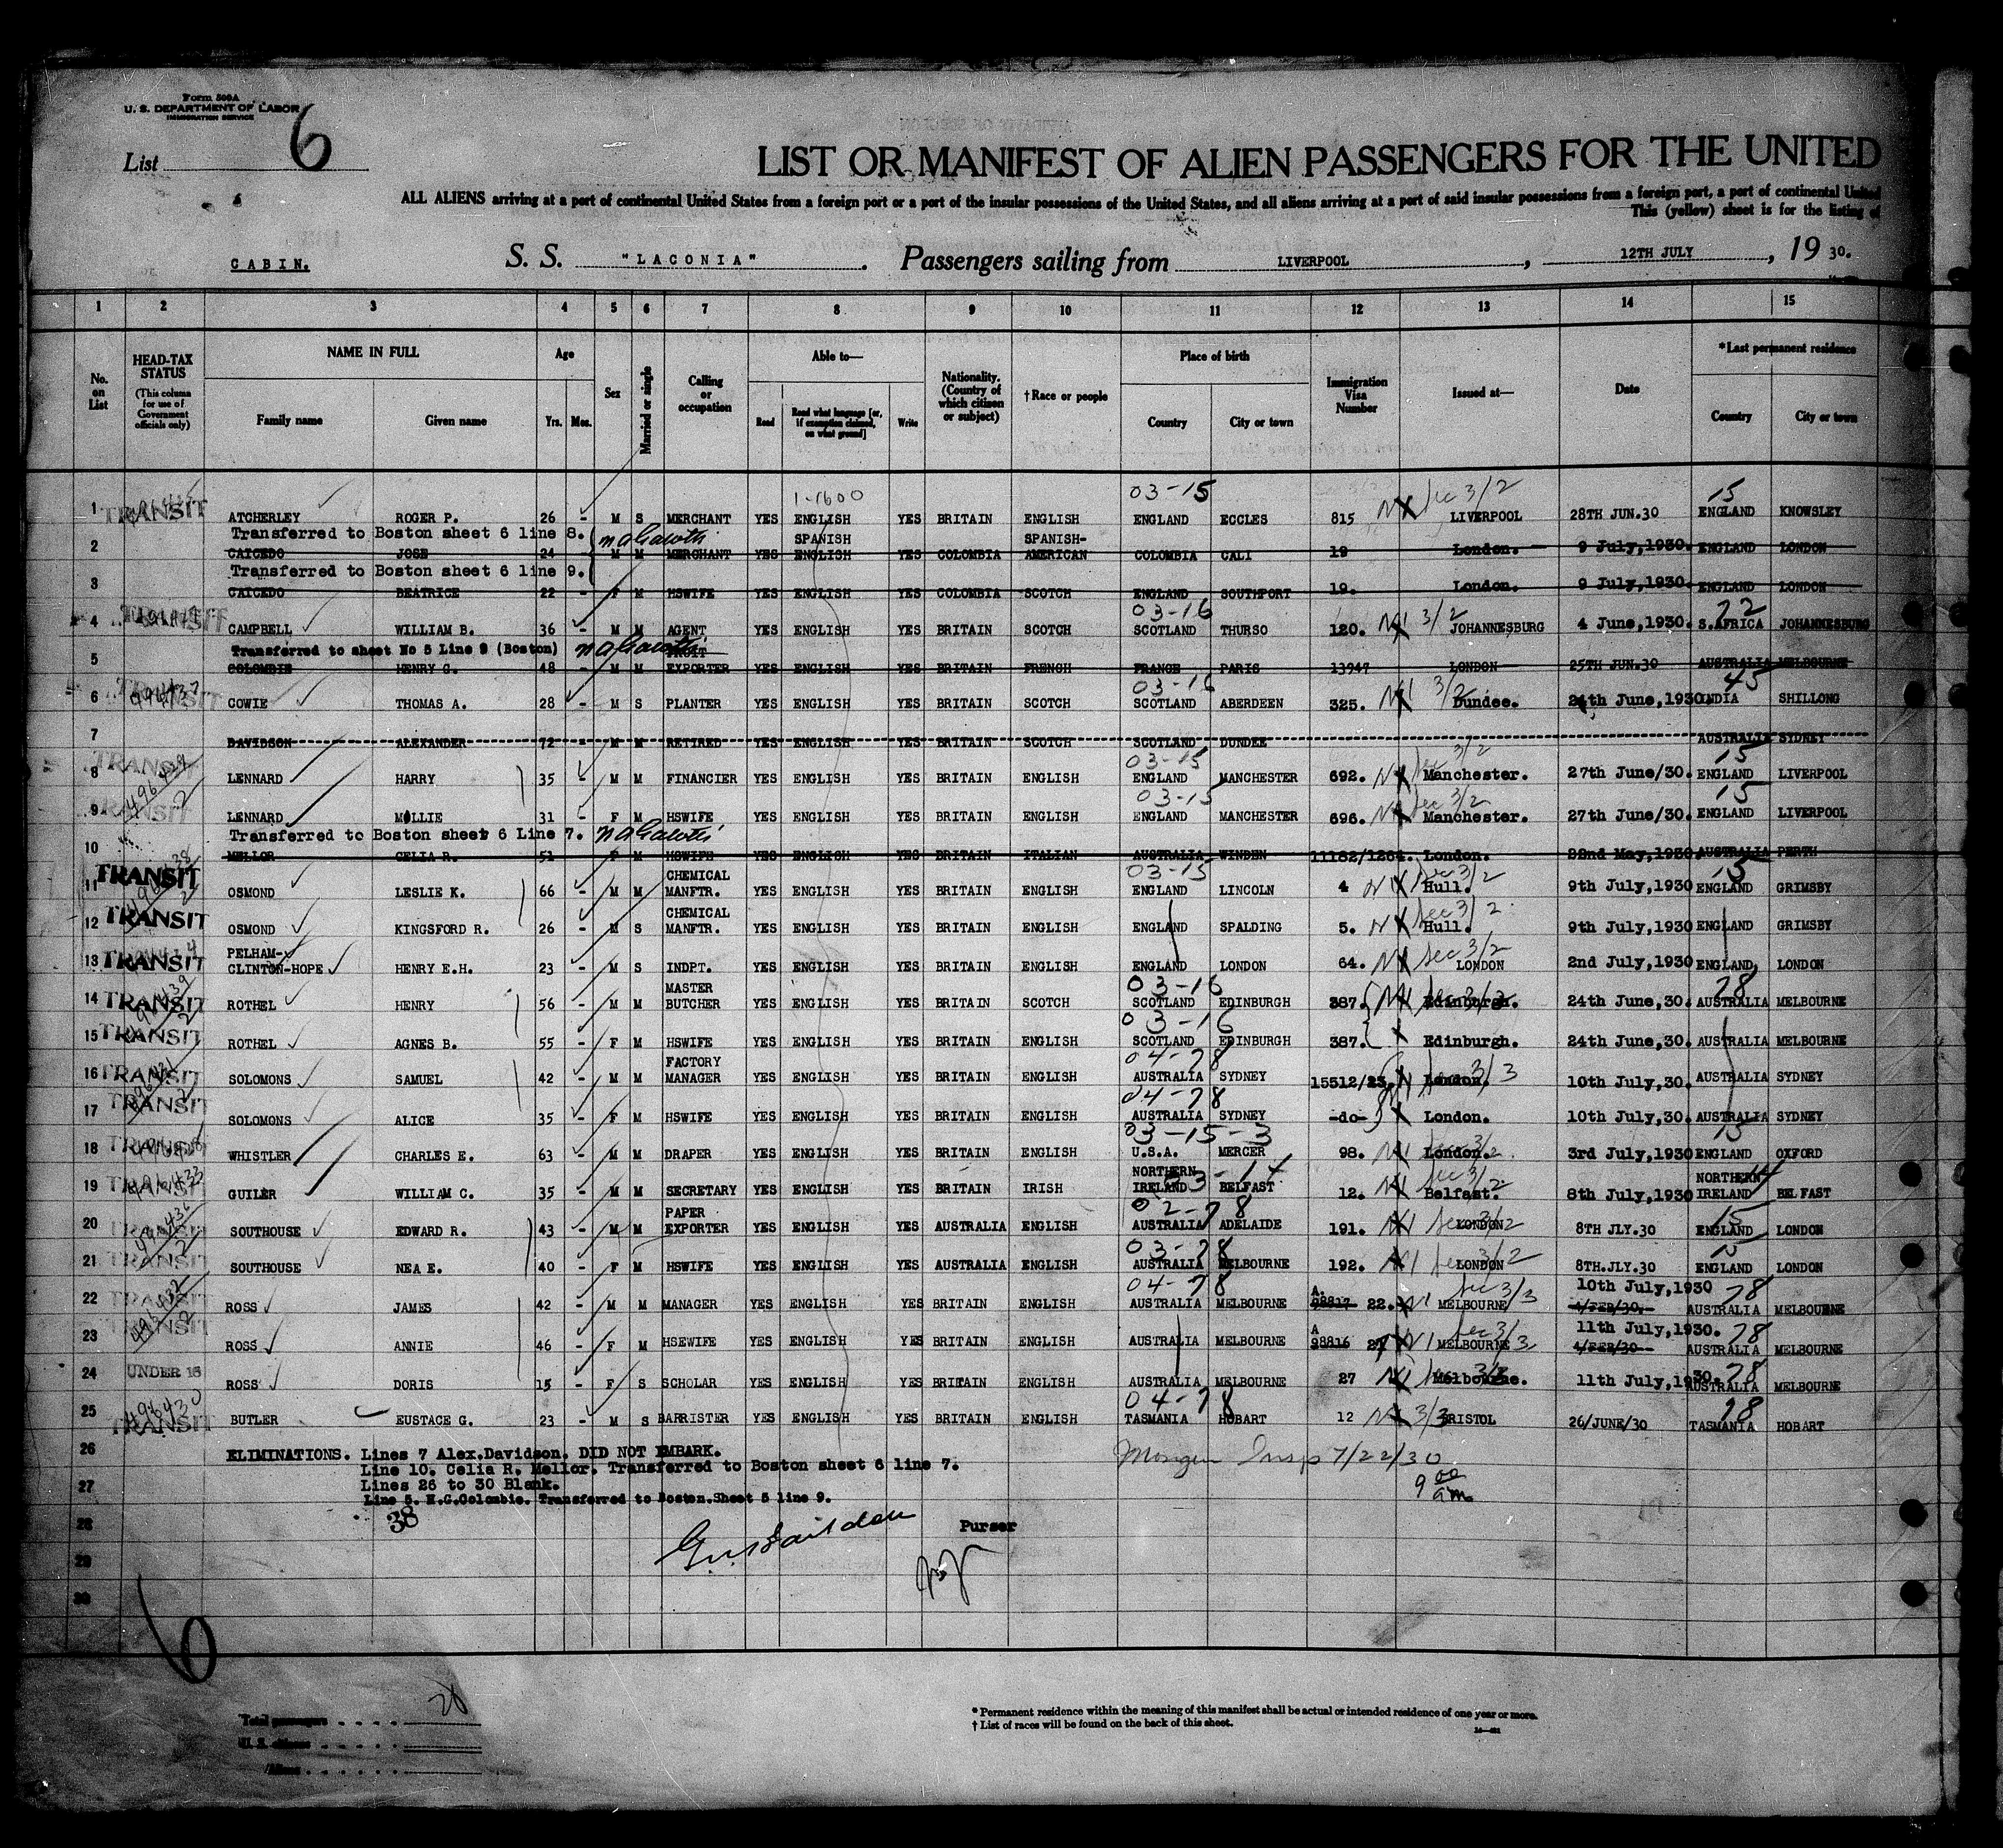 Form 500A
U. S. DEPARTMENT OF LABOR
IMMIGRATION SERVICE
List 6
LIST OR MANIFEST OF ALIEN PASSENGERS FOR THE UNITED
ALL ALIENS arriving at a port of continental United States from a foreign port or a port of the insular possessions of the United States, and all aliens arriving at a port of said insular possessions from a foreign port, a port of continental United
This (yellow) sheet is for the listing of
CABIN. S. S. "LACONIA". Passengers sailing from LIVERPOOL, 12TH JULY, 19 30.
1 2 3 4 5 6 7 8 9 10 11 12 13 14 15
No. on List
HEAD-TAX STATUS (This column for use of Government officials only)
NAME IN FULL Family name Given name
Age Yrs. Mos.
Sex
Married or single
Calling or occupation
Able to— Read Read what language [or, if exemption claimed, on what ground] Write
Nationality. (Country of which citizen or subject)
†Race or people
Place of birth Country City or town
Immigration Visa Number
Issued at—
Date
*Last permanent residence Country City or town
1-1600 03-15 Sec 3/2 15
1 TRANSIT ATCHERLEY ROGER P. 26 - M S MERCHANT YES ENGLISH YES BRITAIN ENGLISH ENGLAND ECCLES 815 LIVERPOOL 28TH JUN.30 ENGLAND KNOWSLEY
Transferred to Boston sheet 6 line 8. SPANISH SPANISH-
2 CAICEDO JOSE 24 - M M MERCHANT YES ENGLISH YES COLOMBIA AMERICAN COLOMBIA CALI 19 London. 9 July,1930. ENGLAND LONDON
Transferred to Boston sheet 6 line 9.
3 CAICEDO BEATRICE 22 - F M HSWIFE YES ENGLISH YES COLOMBIA SCOTCH ENGLAND SOUTHPORT 19. London. 9 July,1930. ENGLAND LONDON
03-16 3/2 72
4 TRANSIT CAMPBELL WILLIAM B. 36 - M M AGENT YES ENGLISH YES BRITAIN SCOTCH SCOTLAND THURSO 120. JOHANNESBURG 4 June,1930. S.AFRICA JOHANNESBURG
Transferred to sheet No 5 Line 9 (Boston) FRUIT
5 COLOMBIE HENRY G. 48 - M M EXPORTER YES ENGLISH YES BRITAIN FRENCH FRANCE PARIS 13947 LONDON 25TH JUN.30 AUSTRALIA MELBOURNE
03-16 3/2 45
6 TRANSIT COWIE THOMAS A. 28 - M S PLANTER YES ENGLISH YES BRITAIN SCOTCH SCOTLAND ABERDEEN 325. Dundee. 24th June,1930 INDIA SHILLONG
7 DAVIDSON ALEXANDER 72 - M M RETIRED YES ENGLISH YES BRITAIN SCOTCH SCOTLAND DUNDEE AUSTRALIA SYDNEY
03-15 3/2 15
8 TRANSIT LENNARD HARRY 35 M M FINANCIER YES ENGLISH YES BRITAIN ENGLISH ENGLAND MANCHESTER 692. Manchester. 27th June/30. ENGLAND LIVERPOOL
03-15 Sec 3/2 15
9 TRANSIT LENNARD MOLLIE 31 F M HSWIFE YES ENGLISH YES BRITAIN ENGLISH ENGLAND MANCHESTER 696. Manchester. 27th June/30. ENGLAND LIVERPOOL
Transferred to Boston sheet 6 Line 7.
10 MELLOR CELIA R. 51 F M HSWIFE YES ENGLISH YES BRITAIN ITALIAN AUSTRALIA WINDEN 11182/1264. London. 22nd May,1930 AUSTRALIA PERTH
CHEMICAL 03-15 Sec 3/2 15
11 TRANSIT OSMOND LESLIE K. 66 - M M MANFTR. YES ENGLISH YES BRITAIN ENGLISH ENGLAND LINCOLN 4 Hull. 9th July,1930 ENGLAND GRIMSBY
CHEMICAL Sec 3/2
12 TRANSIT OSMOND KINGSFORD R. 26 - M S MANFTR. YES ENGLISH YES BRITAIN ENGLISH ENGLAND SPALDING 5. Hull. 9th July,1930 ENGLAND GRIMSBY
PELHAM- Sec 3/2
13 TRANSIT CLINTON-HOPE HENRY E.H. 23 - M S INDPT. YES ENGLISH YES BRITAIN ENGLISH ENGLAND LONDON 64. LONDON 2nd July,1930 ENGLAND LONDON
MASTER 03-16 78
14 TRANSIT ROTHEL HENRY 56 - M M BUTCHER YES ENGLISH YES BRITAIN SCOTCH SCOTLAND EDINBURGH 387. Edinburgh. 24th June,30. AUSTRALIA MELBOURNE
03-16
15 TRANSIT ROTHEL AGNES B. 55 - F M HSWIFE YES ENGLISH YES BRITAIN ENGLISH SCOTLAND EDINBURGH 387. Edinburgh. 24th June,30. AUSTRALIA MELBOURNE
FACTORY 04-78 3/3
16 TRANSIT SOLOMONS SAMUEL 42 - M M MANAGER YES ENGLISH YES BRITAIN ENGLISH AUSTRALIA SYDNEY 15512/23. London. 10th July,30. AUSTRALIA SYDNEY
04-78
17 TRANSIT SOLOMONS ALICE 35 - F M HSWIFE YES ENGLISH YES BRITAIN ENGLISH AUSTRALIA SYDNEY -do- London. 10th July,30. AUSTRALIA SYDNEY
03-15-3 15
18 TRANSIT WHISTLER CHARLES E. 63 - M M DRAPER YES ENGLISH YES BRITAIN ENGLISH U.S.A. MERCER 98. London. 3rd July,1930 ENGLAND OXFORD
NORTHERN Sec 3/2 NORTHERN
19 TRANSIT GUILER WILLIAM C. 35 - M M SECRETARY YES ENGLISH YES BRITAIN IRISH IRELAND BELFAST 12. Belfast. 8th July,1930 IRELAND BELFAST
PAPER 02-78 15
20 TRANSIT SOUTHOUSE EDWARD R. 43 - M M EXPORTER YES ENGLISH YES AUSTRALIA ENGLISH AUSTRALIA ADELAIDE 191. LONDON 8TH JLY.30 ENGLAND LONDON
03-78 15
21 TRANSIT SOUTHOUSE NEA E. 40 - F M HSWIFE YES ENGLISH YES AUSTRALIA ENGLISH AUSTRALIA MELBOURNE 192. LONDON 8TH.JLY.30 ENGLAND LONDON
04-78 A. Sec 3/3 10th July,1930 78
22 TRANSIT ROSS JAMES 42 - M M MANAGER YES ENGLISH YES BRITAIN ENGLISH AUSTRALIA MELBOURNE 98817 22. MELBOURNE 4/FEB/30. AUSTRALIA MELBOURNE
A Sec 3/3 11th July,1930. 78
23 TRANSIT ROSS ANNIE 46 - F M HSEWIFE YES ENGLISH YES BRITAIN ENGLISH AUSTRALIA MELBOURNE 98816 27 MELBOURNE 4/FEB/30 AUSTRALIA MELBOURNE
78
24 UNDER 16 ROSS DORIS 15 - F S SCHOLAR YES ENGLISH YES BRITAIN ENGLISH AUSTRALIA MELBOURNE 27 Melbourne. 11th July,1930. AUSTRALIA MELBOURNE
04-78 78
25 TRANSIT 496430 BUTLER EUSTACE G. 23 - M S BARRISTER YES ENGLISH YES BRITAIN ENGLISH TASMANIA HOBART 12 3/3 BRISTOL 26/JUNE/30 TASMANIA HOBART
26 ELIMINATIONS. Lines 7 Alex.Davidson. DID NOT EMBARK.
Line 10. Celia R. Mellor. Transferred to Boston sheet 6 line 7. Insp 7/22/30
27 Lines 26 to 30 Blank. 9 00 am.
Line 5. H.G.Colombie. Transferred to Boston.Sheet 5 line 9.
28 38 Purser
29
30
6
Total passengers . . . . 20
U. S. citizens . . . . .
Aliens . . . . . .
* Permanent residence within the meaning of this manifest shall be actual or intended residence of one year or more.
† List of races will be found on the back of this sheet.